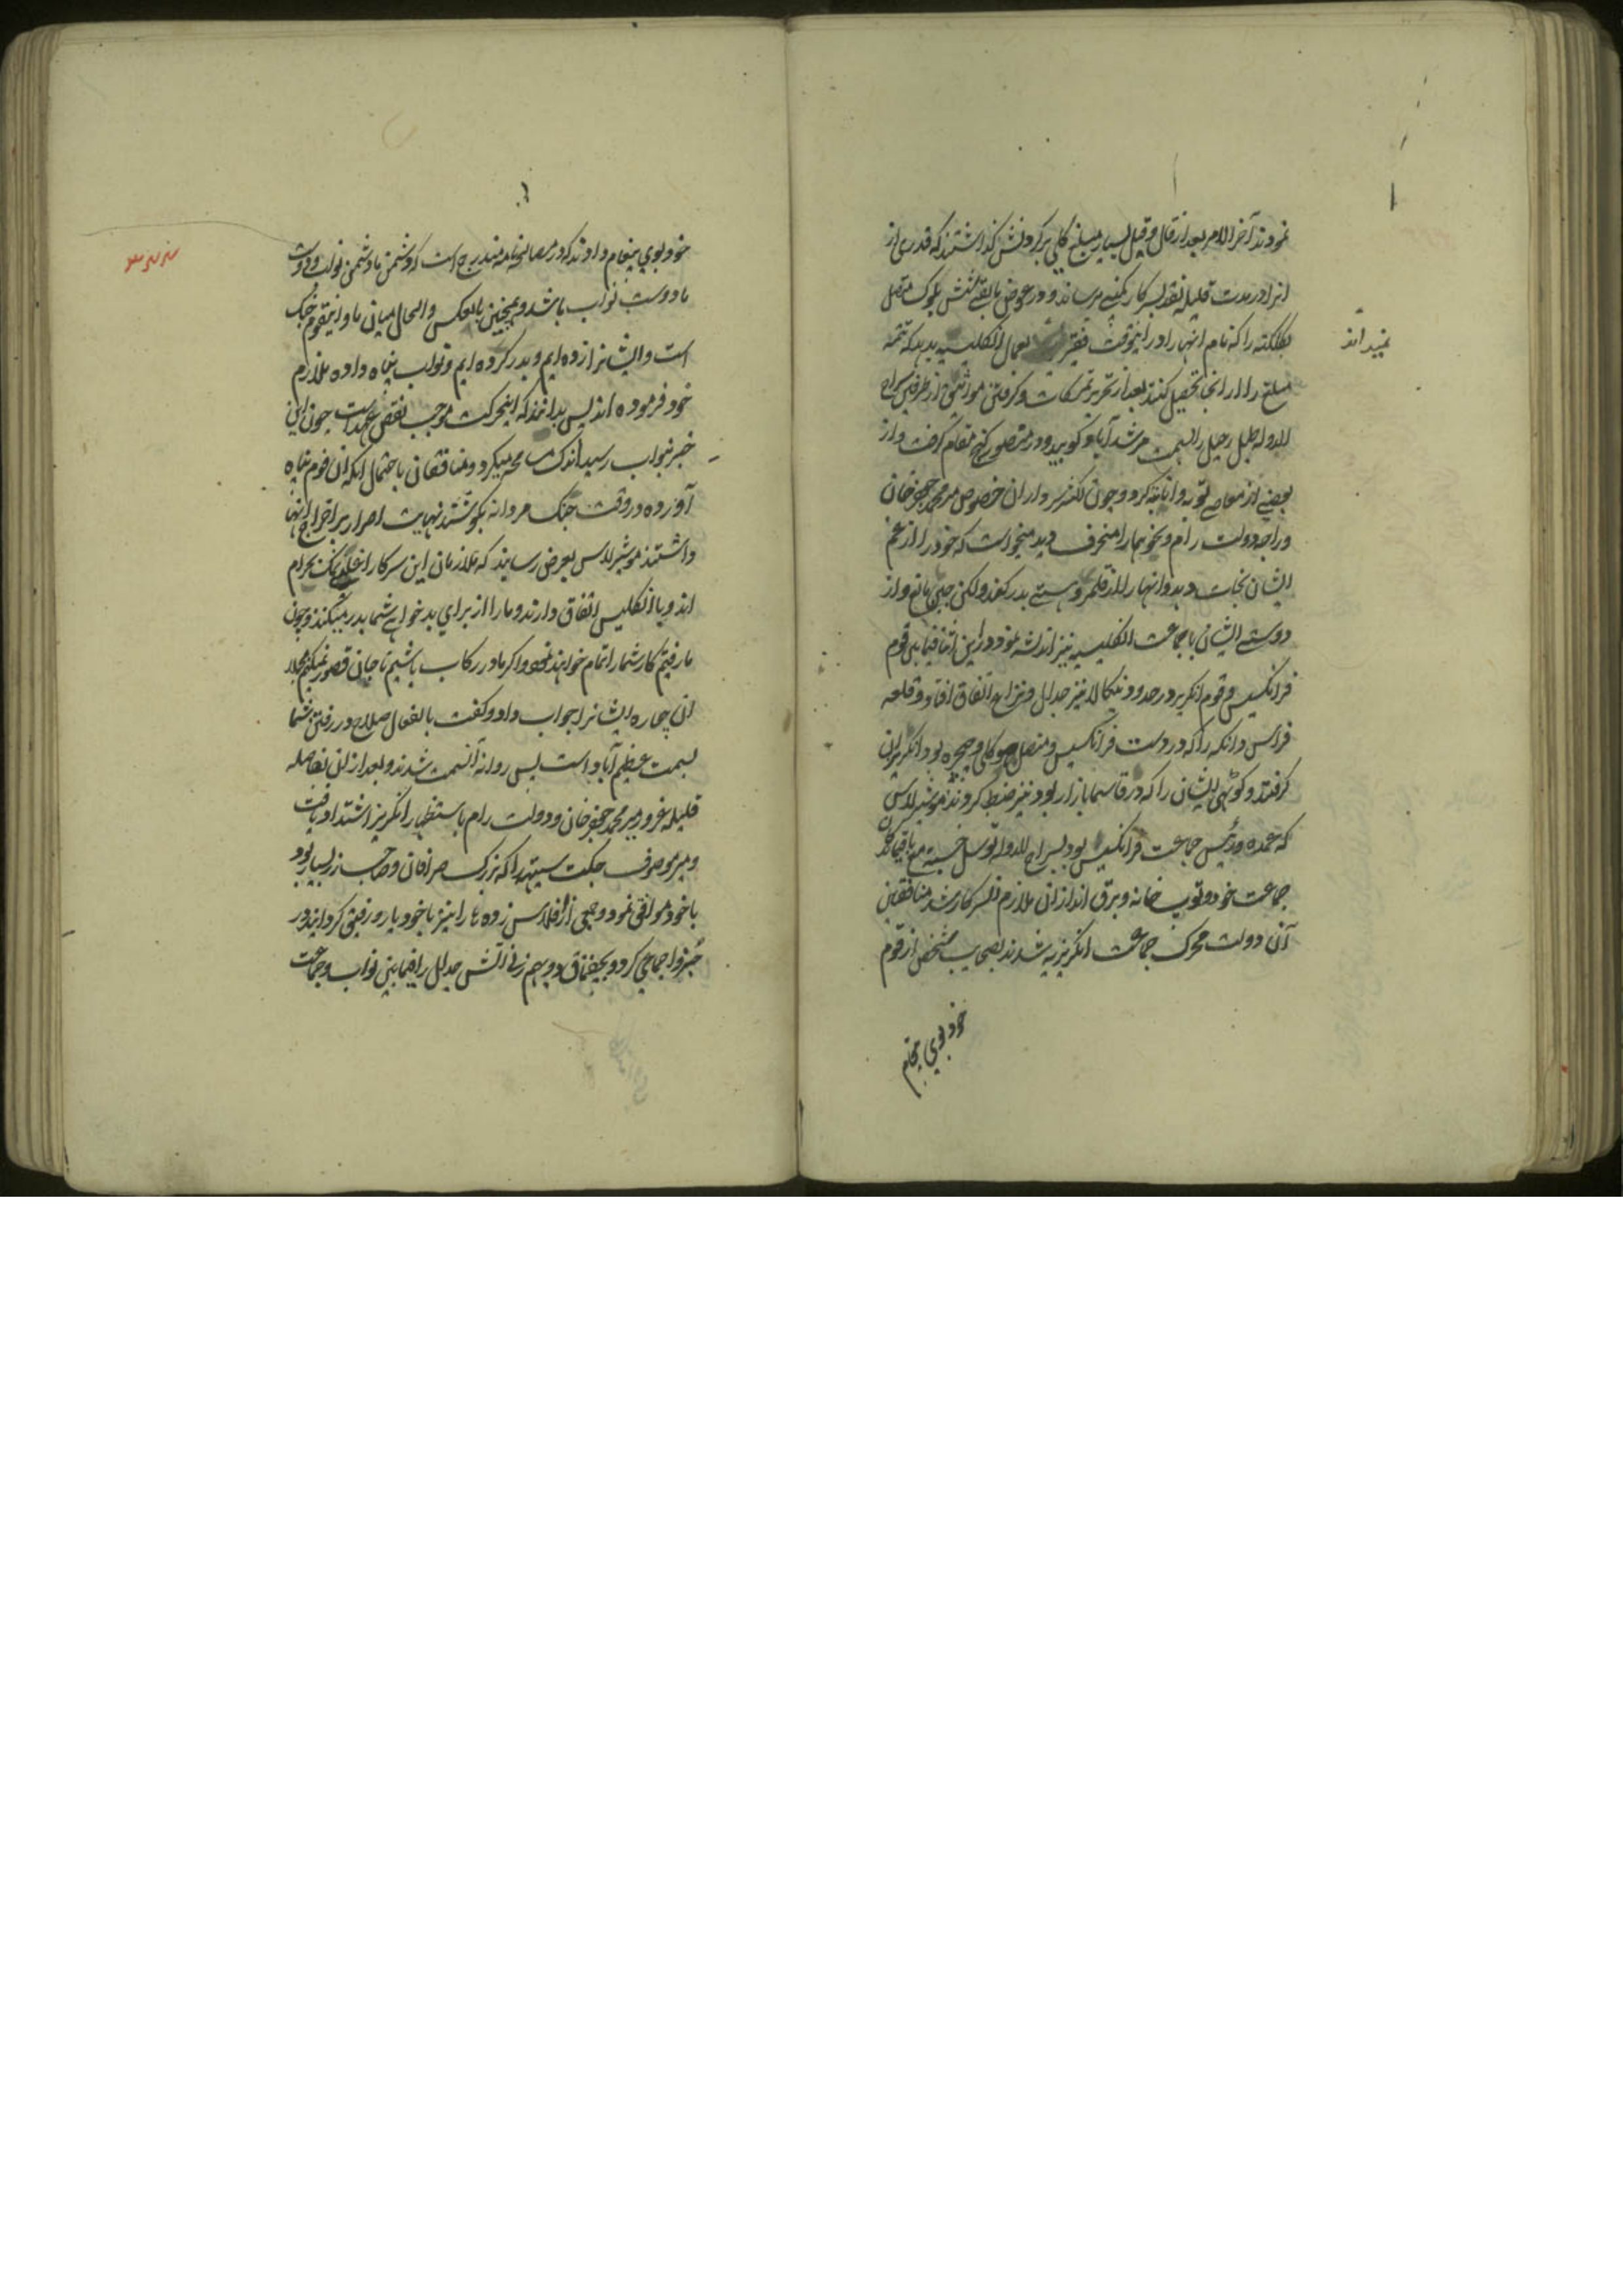 نمودند آخر الامر بعد از قال و قیل بسیار مبلغ کلی بر کردنش گذاشتند که قدری از
انرا در مدت قلیله نقد بسرکار کمپنی برساند و در عوض باقی شش بلوک متصل
بکلکته را که نام انها را در اینوقت فقیر بعمال انکلیسیه بدهد که تتمه
نمیداند
مبلغ را از انجا تحصیل کنند بعد از تحریر تمسکات و گرفتن مواثیق از طرفین سراج
الدوله طبل رحیل را بسمت مرشد آباد کوبید و در منصور گنج مقام گرفت و از
بعضی از معاصی توبه و انابه کرد و چون لشکر سرداران خصوص میر محمد جعفر خان
و راجه دولت رام و نحوهما را منحرف دید میخواست که خود را از غم
ایشان نجات دهد و انها را از قلمرو هستی بدر کند ولکن جبن مانع و از
دوستی ایشان با جماعت انکلیسیه نیز اندیشه نمود در این اثنا فیما بین قوم
فرانکسیس و قوم انکریز در حدود بنکاله نیز جدال و نزاع اتفاق افتاد و قلعه
فراس دانکه را که در دست فرانکسیس و متصل هوکلی و چچره بود انکریزان
گرفتند و کوتهی ایشان را که در قاسمبازار بود نیز ضبط کردند موشیر لاس
که عمده و رئیس جماعت فرانکسیس بود بسراج الدوله توسل جسته مع باقیماندگان
جماعت خود و توپ خانه و برق اندازان ملازم سرکار شد منافقین
آن دولت محرک جماعت انکریزیه شدند بصحابت شخصی از قوم
خود بوی پیغام
خود بوی پیغام دادند که در مصالحه نامه مندرج است که دشمن ما دشمن نواب و دوست
ما دوست نواب باشد و همچنین بالعکس و الحال میان ما و اینقوم جنک
است و ایشانرا زده ایم و بدر کرده ایم و نواب پناه داده ملازم
خود فرموده اند پس بدانند که اینحرکت موجب نقض عهد است چون این
خبر بنواب رسید اندک میکرد و منافقان باحتمال انکه ان قوم پناه
آورده در وقت جنک مردانه بکوشند نهایت اصرار بر اخراج انها
داشتند موشیر لاس بعرض رسانید که ملازمان این سرکار اغلبی نمک بحرام
اند و با انکلیس اتفاق دارند و ما را از برای بد خواهی شما بدر میکنند و چون
ما رفتیم کار شما را تمام خواهند نمود و اگر ما در رکاب باشیم تا جان قصور نمیکنیم مجملا
ان بیچاره ایشانرا جواب داد و گفت بالفعل صلاح در رفتن شما
بسمت عظیم آباد است پس روانه آنسمت شدند و بعد از ان بفاصله
قلیله غرور میر محمد جعفر خان و دولت رام باستظهار انکریز اشتداد یافت
و میر موصوف جکت سیتهه را که بزرک صرافان و صاحب زر بسیار بود
با خود موافق نمود و جمعی از افلاس زده ها را نیز با خود یار و رفیق گردانید و در
خبز و اجماعی کرد و بچقماق دو بهم زنی آتش جدال را فیما بین نواب و جماعت